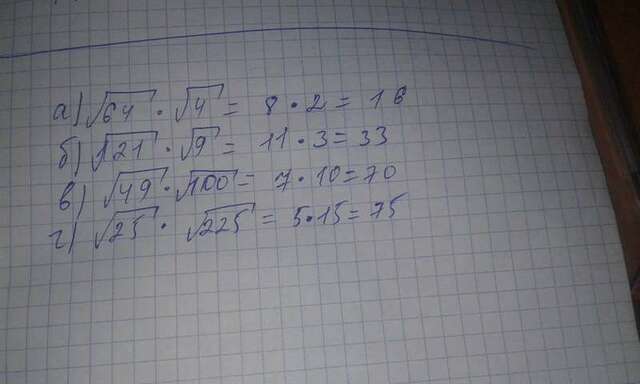 а) √64 · √4 = 8 · 2 = 16
б) √121 · √9 = 11 · 3 = 33
в) √49 · √100 = 7 · 10 = 70
г) √25 · √225 = 5 · 15 = 75